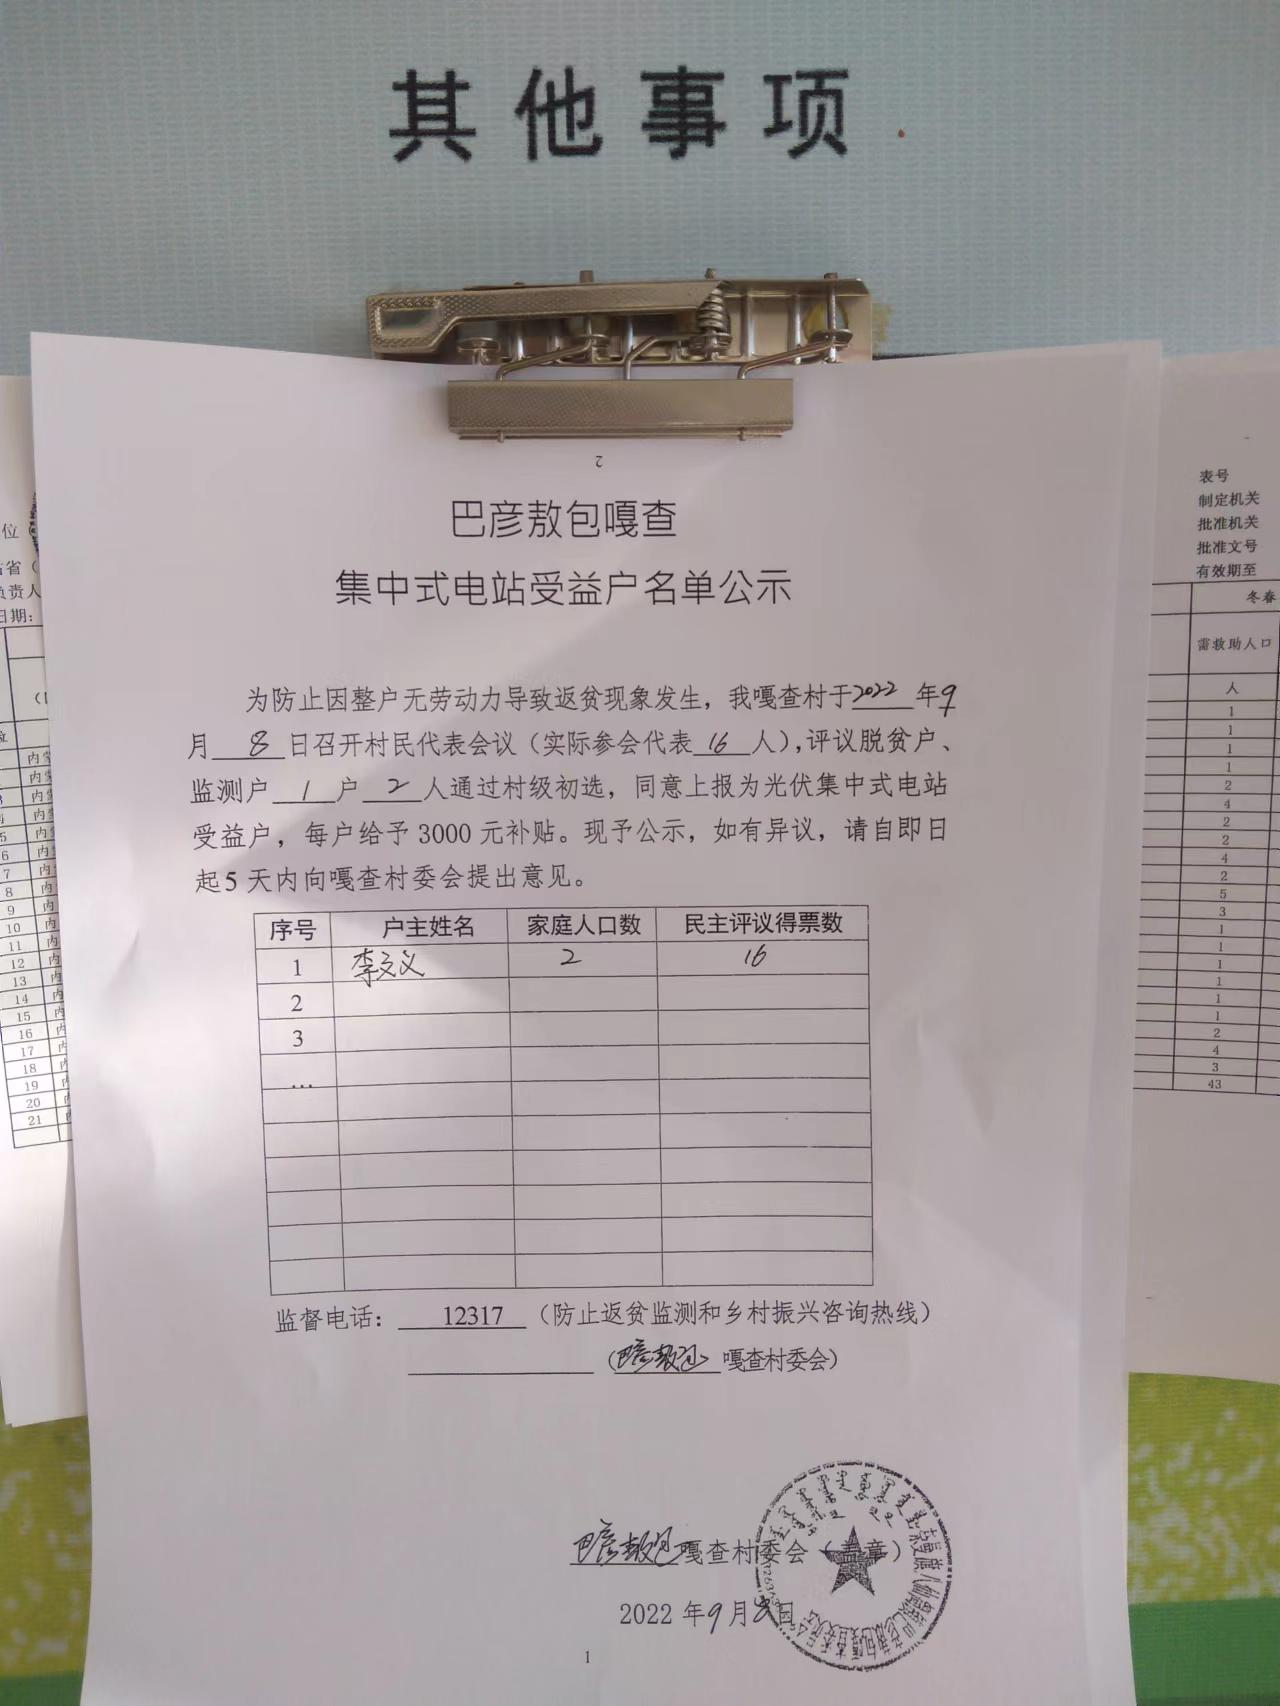 其他事项
2
巴彦敖包嘎查
集中式电站受益户名单公示
为防止因整户无劳动力导致返贫现象发生，我嘎查村于2022年9
月8日召开村民代表会议（实际参会代表16人），评议脱贫户、
监测户1户2人通过村级初选，同意上报为光伏集中式电站
受益户，每户给予3000元补贴。现予公示，如有异议，请自即日
起5天内向嘎查村委会提出意见。
序号 户主姓名 家庭人口数 民主评议得票数
1 李文义 2 16
2
3
…
监督电话：12317（防止返贫监测和乡村振兴咨询热线）
（巴彦敖包嘎查村委会）
巴彦敖包嘎查村委会（盖章）
2022年9月8日
1
位
省（
负责人
日期：
位
内蒙
内蒙
内蒙
内
5 内
6 内
7 内
8 内
9 内
10 内
11 内
12 内
13 内
14 内
15 内
16 内
17 内
18 内
19 内
20 内
21 内
表号
制定机关
批准机关
批准文号
有效期至
冬春
需救助人口
人
1
1
1
1
2
4
2
2
4
2
5
3
1
1
1
1
1
2
4
3
43